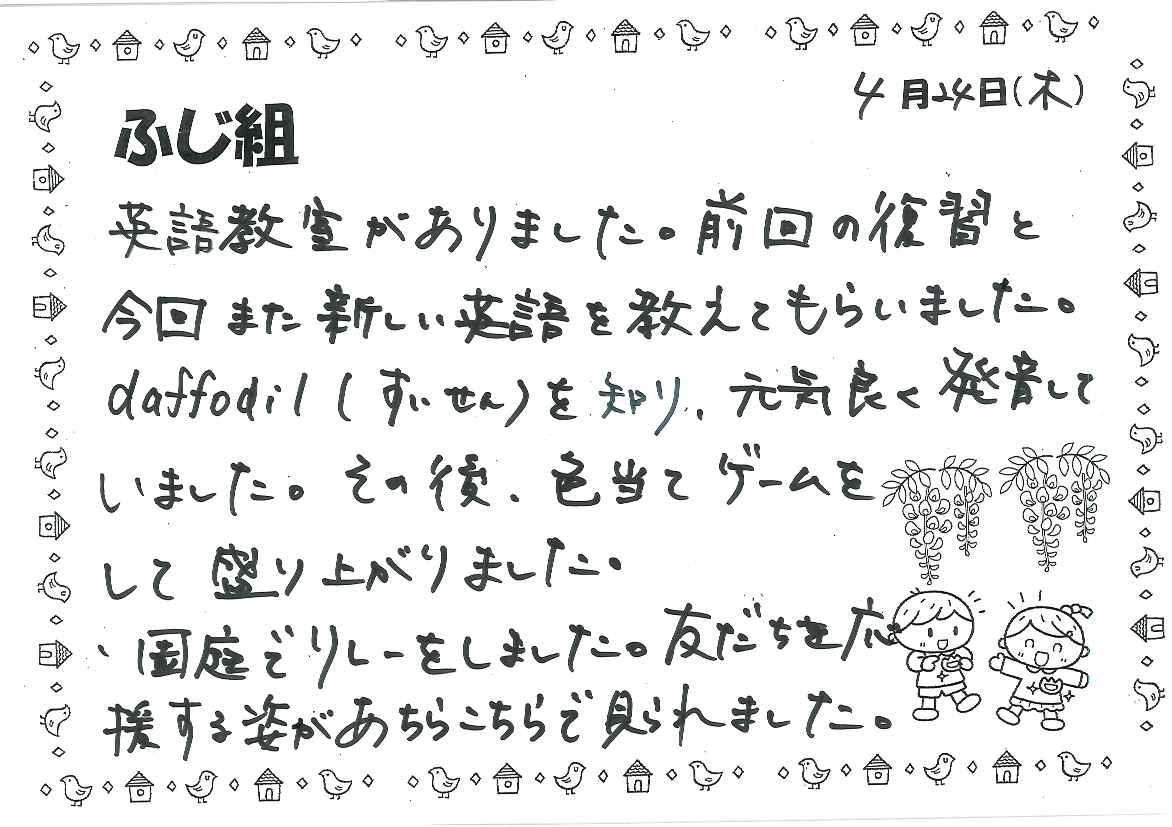 4月24日(木)
ふじ組
英語教室がありました。前回の復習と
今回また新しい英語を教えてもらいました。
daffodil(すいせん)を知り、元気良く発音して
いました。その後、色当てゲームを
して盛り上がりました。
、園庭でリレーをしました。友だちを応
援する姿があちらこちらで見られました。